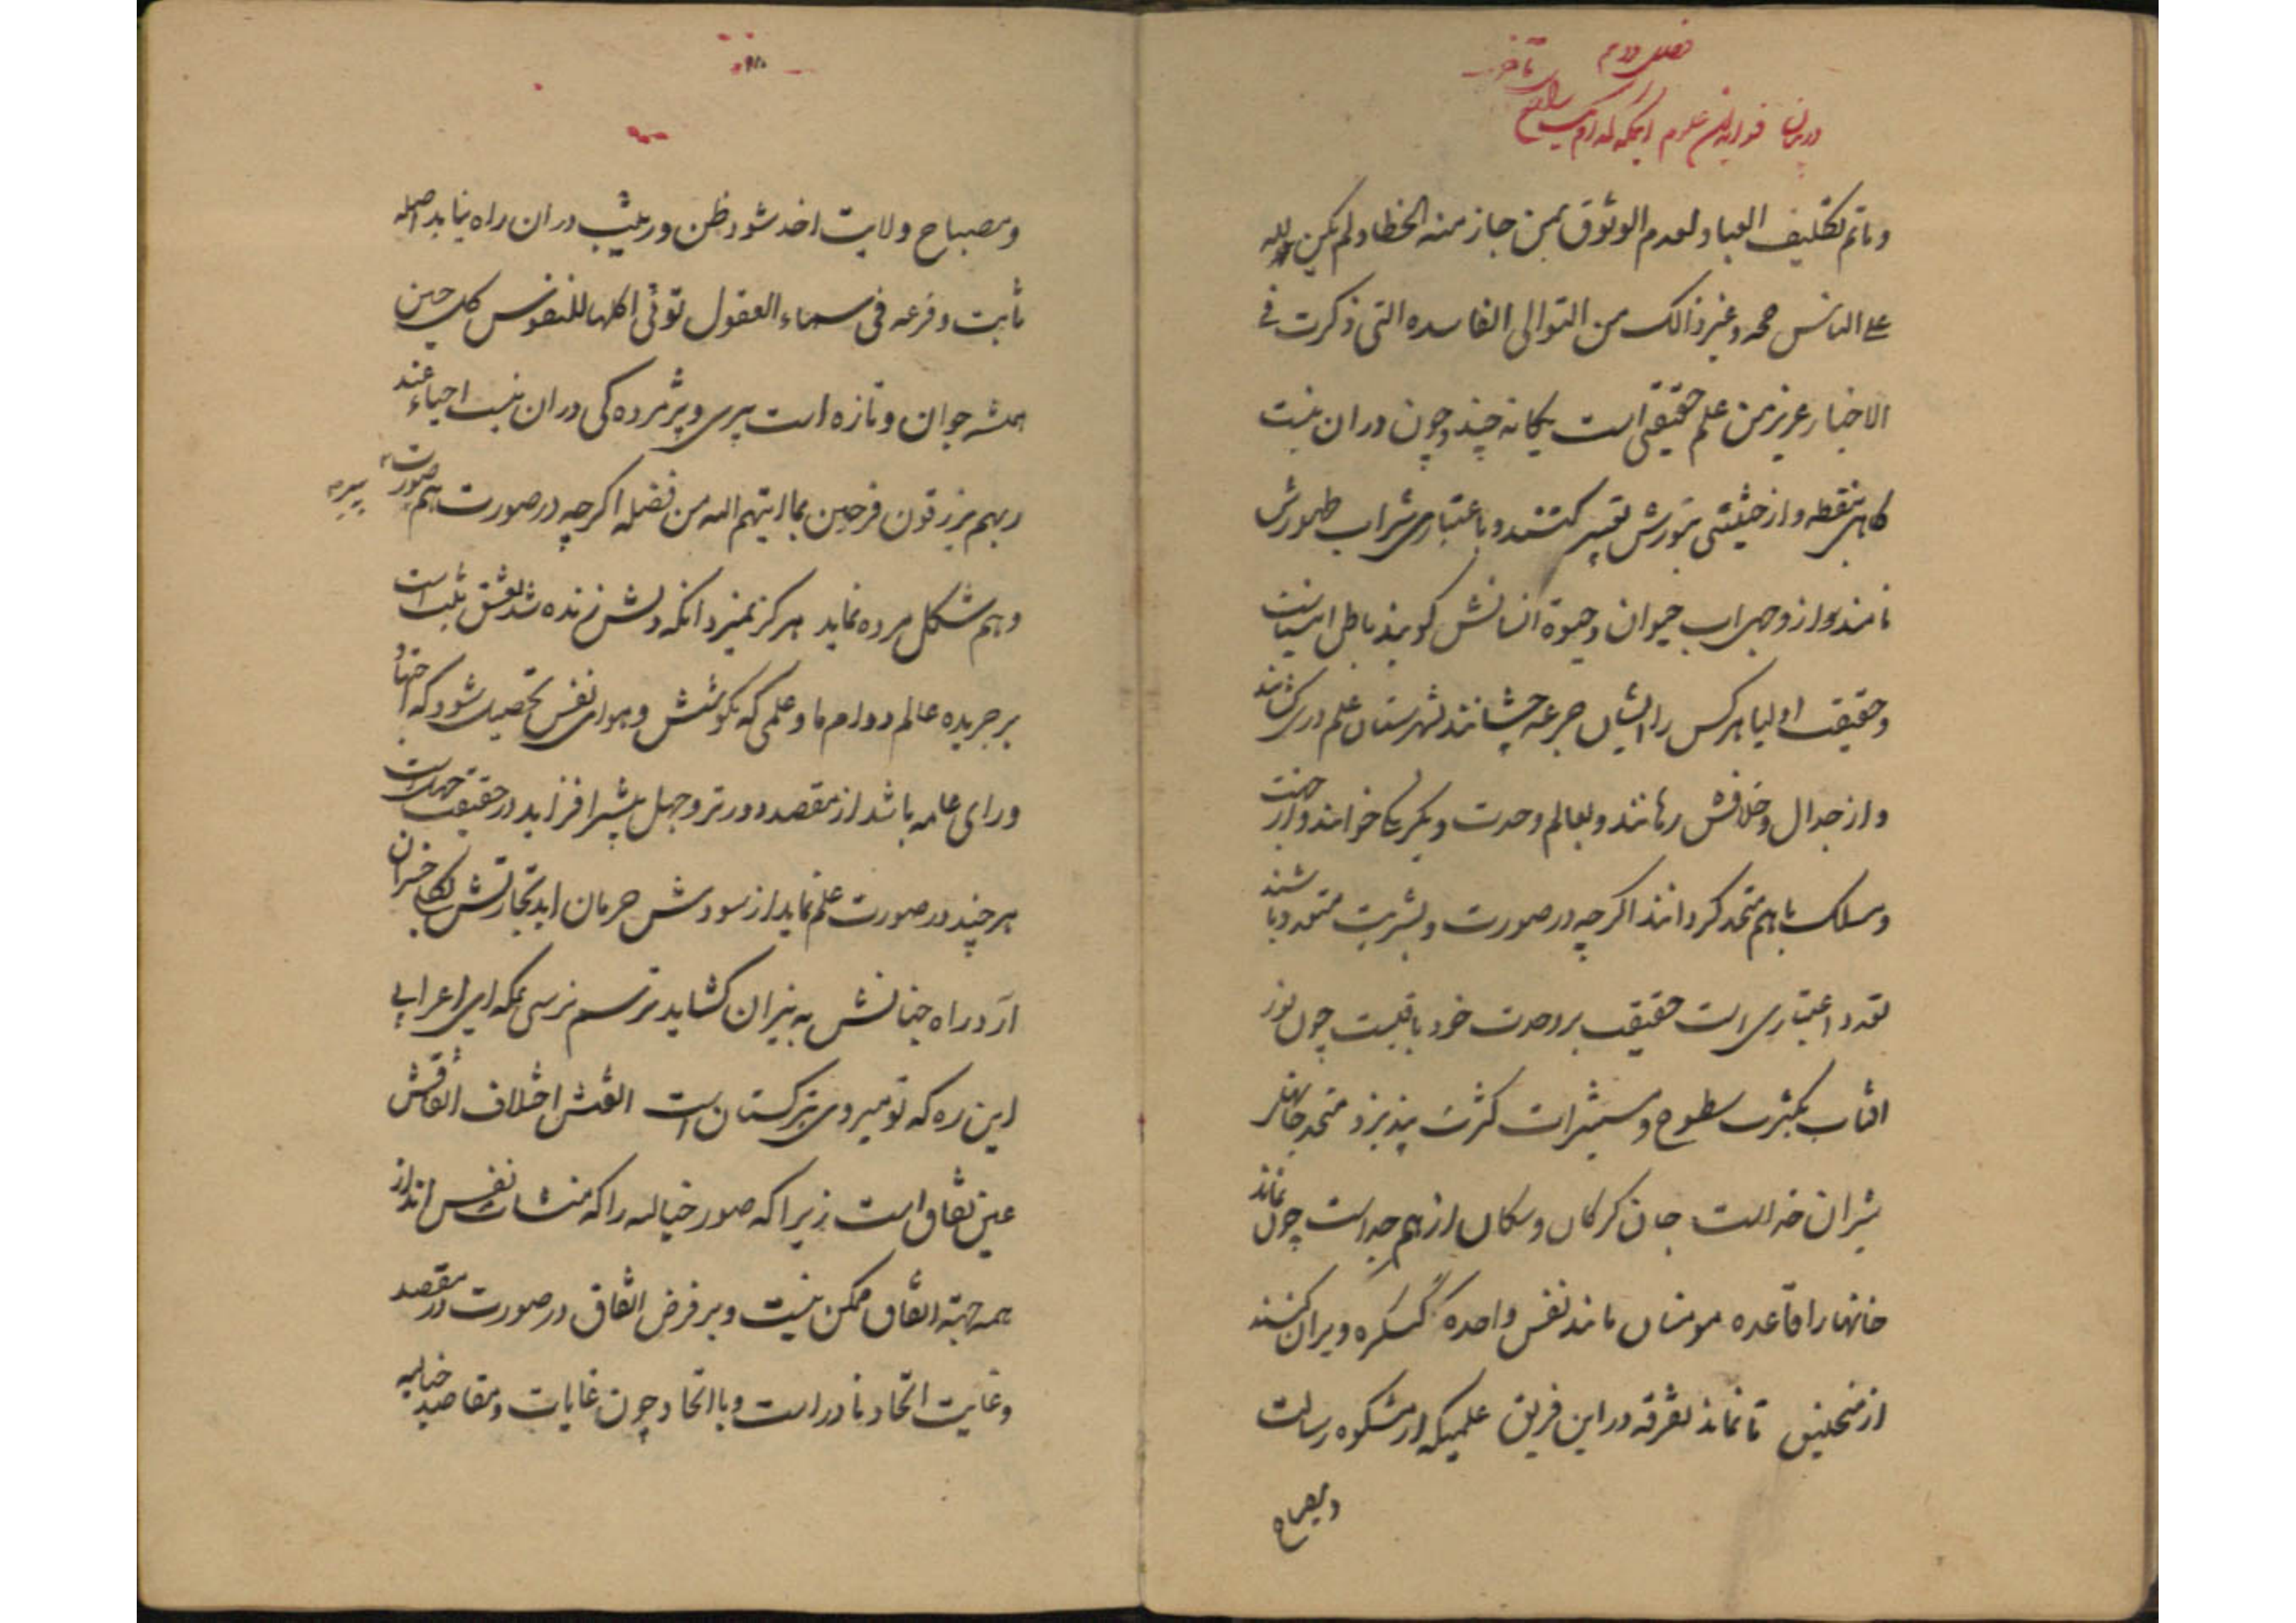 فصل دوم
در بیان فواید این علوم
و ماتم تکلیف العباد لعدم الوثوق بمن جاز منه الخطا و لم یکن لله
علی الناس حجه و غیر ذالک من التوالی الفاسده التی ذکرت فی
الاخبار عزیز من علم حقیقی است یکانه چند و چون در ان نیست
کاهی بنقطه و از حیثیتی بنورش تعبیر کنند و باعتباری شراب طهورش
نامند و از وجهی اب حیوان و حیوة انسانش کویند باطن انبیاست
و حقیقت اولیا هر کس را ایشان جرعه چشانند بشهرستان علم در کشانند
و از جدال و خلافش رهانند و بعالم وحدت و یکرنکی خوانند و از جهت
و مسلک با هم متحد کردانند اکر چه در صورت و بشریت متعدد باشند
تعدد اعتباری است حقیقت بر وحدت خود باقیست چون نور
افتاب بکثرت سطوح و مستنیرات کثرت پذیرد متحد جانهای
شیران خداست جان کرکان و سکان از هم جداست چون نماند
خانها را قاعده مومنان مانند نفس واحده کنکره ویران کنید
از منجنیق تا نماند تفرقه در این فریق علمیکه از مشکوه رسالت
و مصباح
و مصباح ولایت اخذ شود ظن و ریب در ان راه نیابد اصله
ثابت و فرعه فی سماء العقول توتی اکلها للنفوس کل حین
همیشه جوان و تازه است پیری و پژمرده کی در ان نیست احیاء عند
ربهم یرزقون فرحین بما اتیهم الله من فضله اکر چه در صورت هم صورت
و هم شکل مرده نماید هرکز نمیرد انکه دلش زنده شد بعشق ثبت است
بر جریده عالم دوام ما و علمی که بکوشش و هوای نفس تحصیل شود که
و رای عامه باشد از مقصد دورتر و جهل بیشتر افزاید در حقیقت جهل است
هر چند در صورت علم نماید از سودش حرمان اید تجارتش بکلی خسران
آرد راه جنانش به نیران کشاید ترسم نرسی بمکه ای اعرابی
این ره که تو میروی بترکستان است الفتش اختلاف اتفاقش
عین نفاق است زیرا که صور خیالیه را که منشات نفس اند از
همه جهته اتفاق ممکن نیست و بر فرض اتفاق در صورت در مقصد
و غایت اتحاد نادر است و با اتحاد چون غایات و مقاصد خیالیه